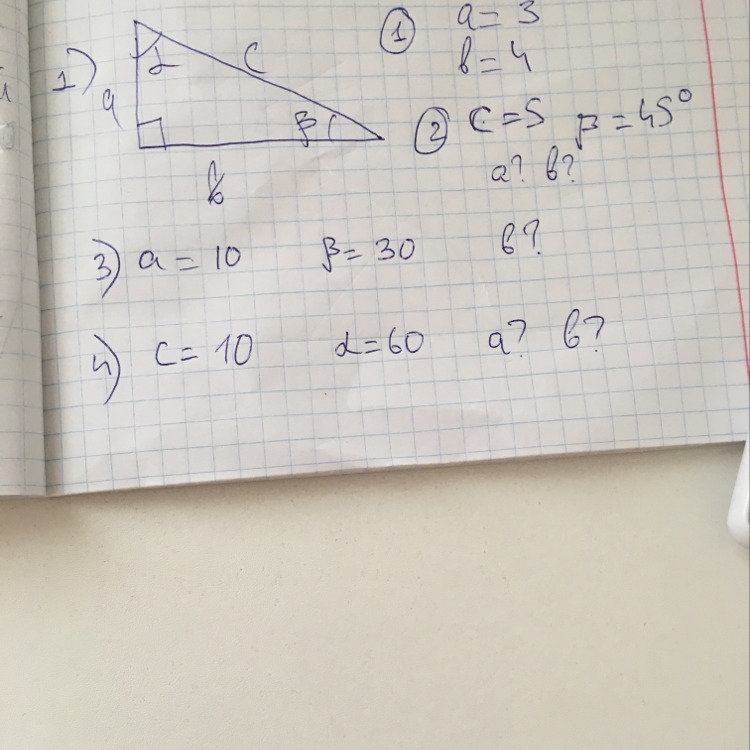 1)
α
c
a
β
b
① a = 3
b = 4
② c = 5 β = 45°
a? b?
3) a = 10 β = 30 b?
4) c = 10 α = 60 a? b?